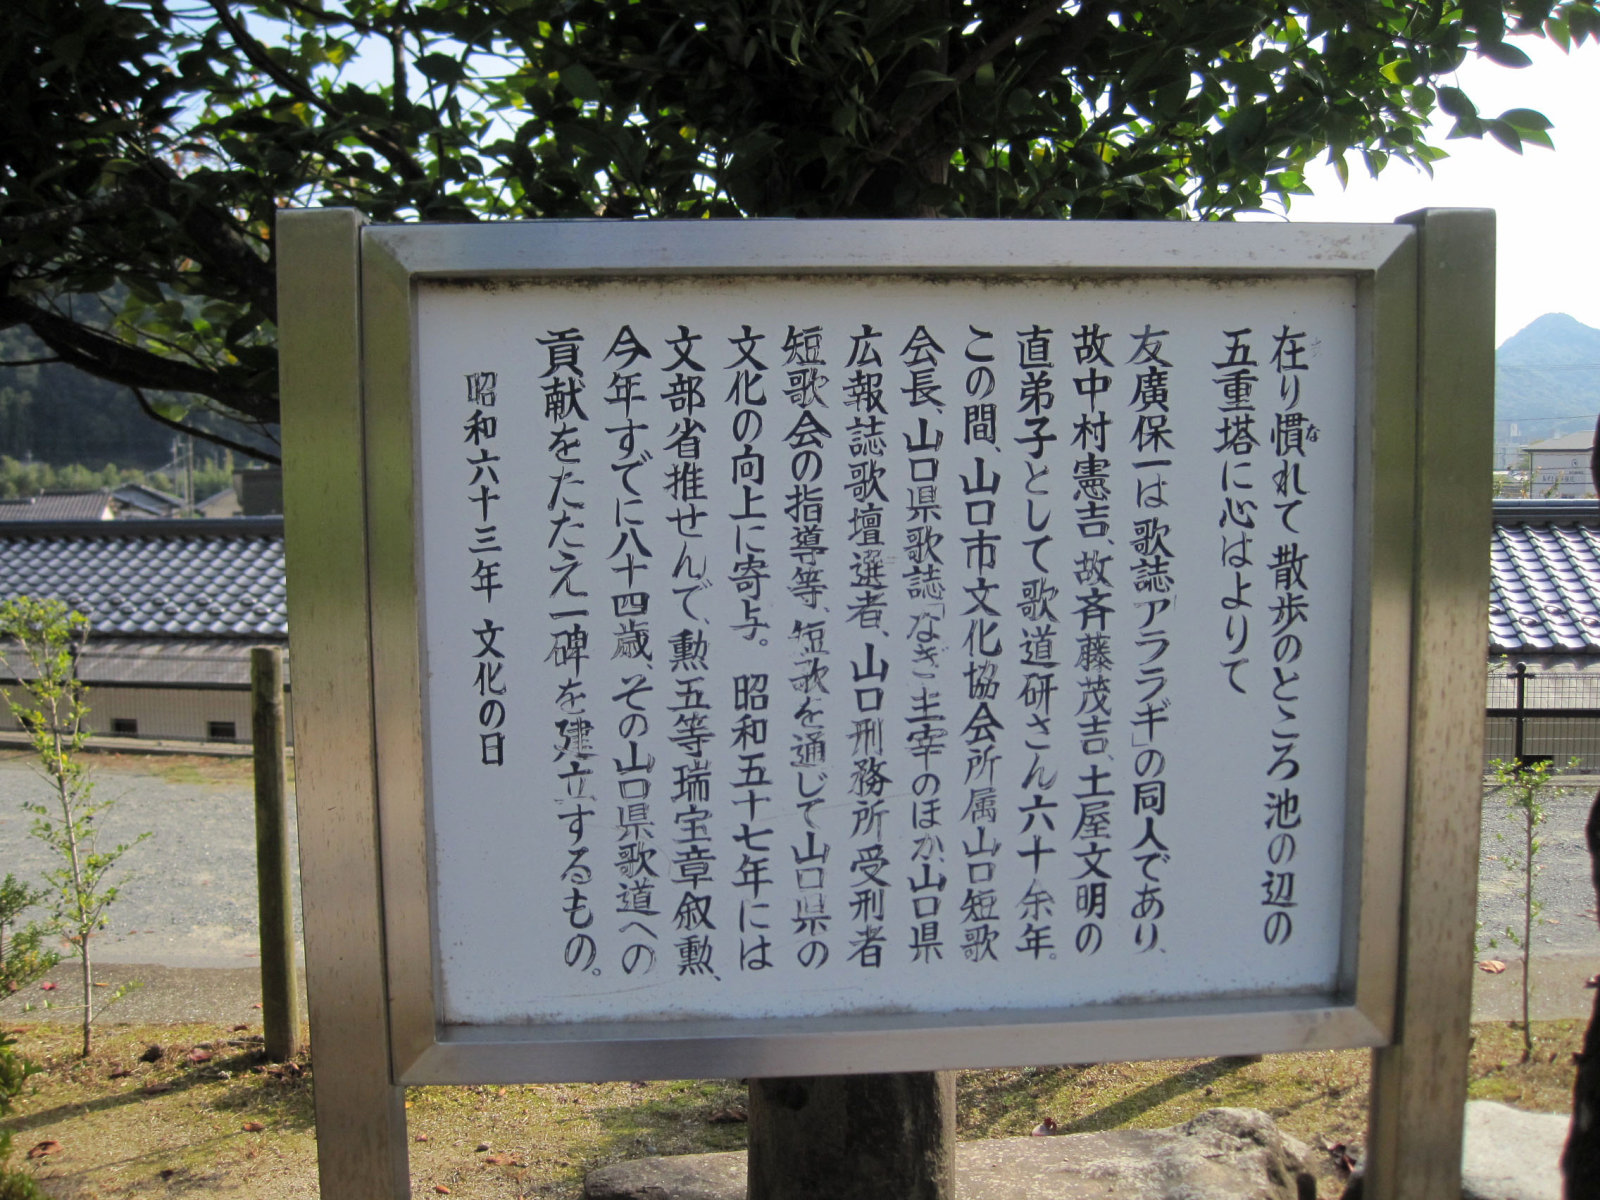 在り慣れて散歩のところ池の辺の
五重塔に心はよりて
友廣保一は歌誌「アララギ」の同人であり、
故中村憲吉、故斉藤茂吉、土屋文明の
直弟子として歌道研さん六十余年。
この間、山口市文化協会所属山口短歌
会長、山口県歌誌「なぎ」主宰のほか、山口県
広報誌歌壇選者、山口刑務所受刑者
短歌会の指導等、短歌を通じて山口県の
文化の向上に寄与。昭和五十七年には
文部省推せんで、勲五等瑞宝章叙勲、
今年すでに八十四歳、その山口県歌道への
貢献をたたえ一碑を建立するもの。
昭和六十三年 文化の日